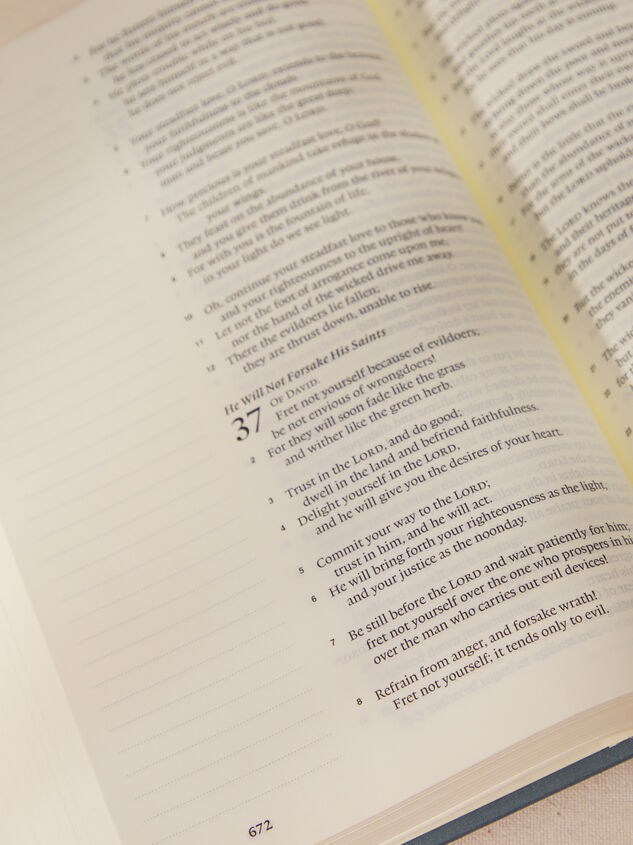 that his iniquity cannot
The words of his mouth are
he has ceased to act wisely and do good.
He plots trouble while on his bed;
he sets himself in a way that is not good;
he does not reject evil.
Your steadfast love, O LORD, extends to the heavens,
your faithfulness to the clouds.
Your righteousness is like the mountains of God;
your judgments are like the great deep;
man and beast you save, O LORD.
7 How precious is your steadfast love, O God!
The children of mankind take refuge in the shadow
your wings.
8 They feast on the abundance of your house,
and you give them drink from the river of your
9 For with you is the fountain of life;
in your light do we see light.
10 Oh, continue your steadfast love to those who know
and your righteousness to the upright of heart!
11 Let not the foot of arrogance come upon me,
nor the hand of the wicked drive me away.
12 There the evildoers lie fallen;
they are thrust down, unable to rise.
He Will Not Forsake His Saints
37 OF DAVID.
Fret not yourself because of evildoers;
be not envious of wrongdoers!
2 For they will soon fade like the grass
and wither like the green herb.
3 Trust in the LORD, and do good;
dwell in the land and befriend faithfulness.
4 Delight yourself in the LORD,
and he will give you the desires of your heart.
5 Commit your way to the LORD;
trust in him, and he will act.
6 He will bring forth your righteousness as the light,
and your justice as the noonday.
7 Be still before the LORD and wait patiently for him;
fret not yourself over the one who prospers in hi
over the man who carries out evil devices!
8 Refrain from anger, and forsake wrath!
Fret not yourself; it tends only to evil.
672
is the little that the
the abundance of
the arms of the wicked
the LORD uphold
The LORD knows the
and their heritage
they are not put to
in the days of
But the wicke
the enemi
they van
The wi